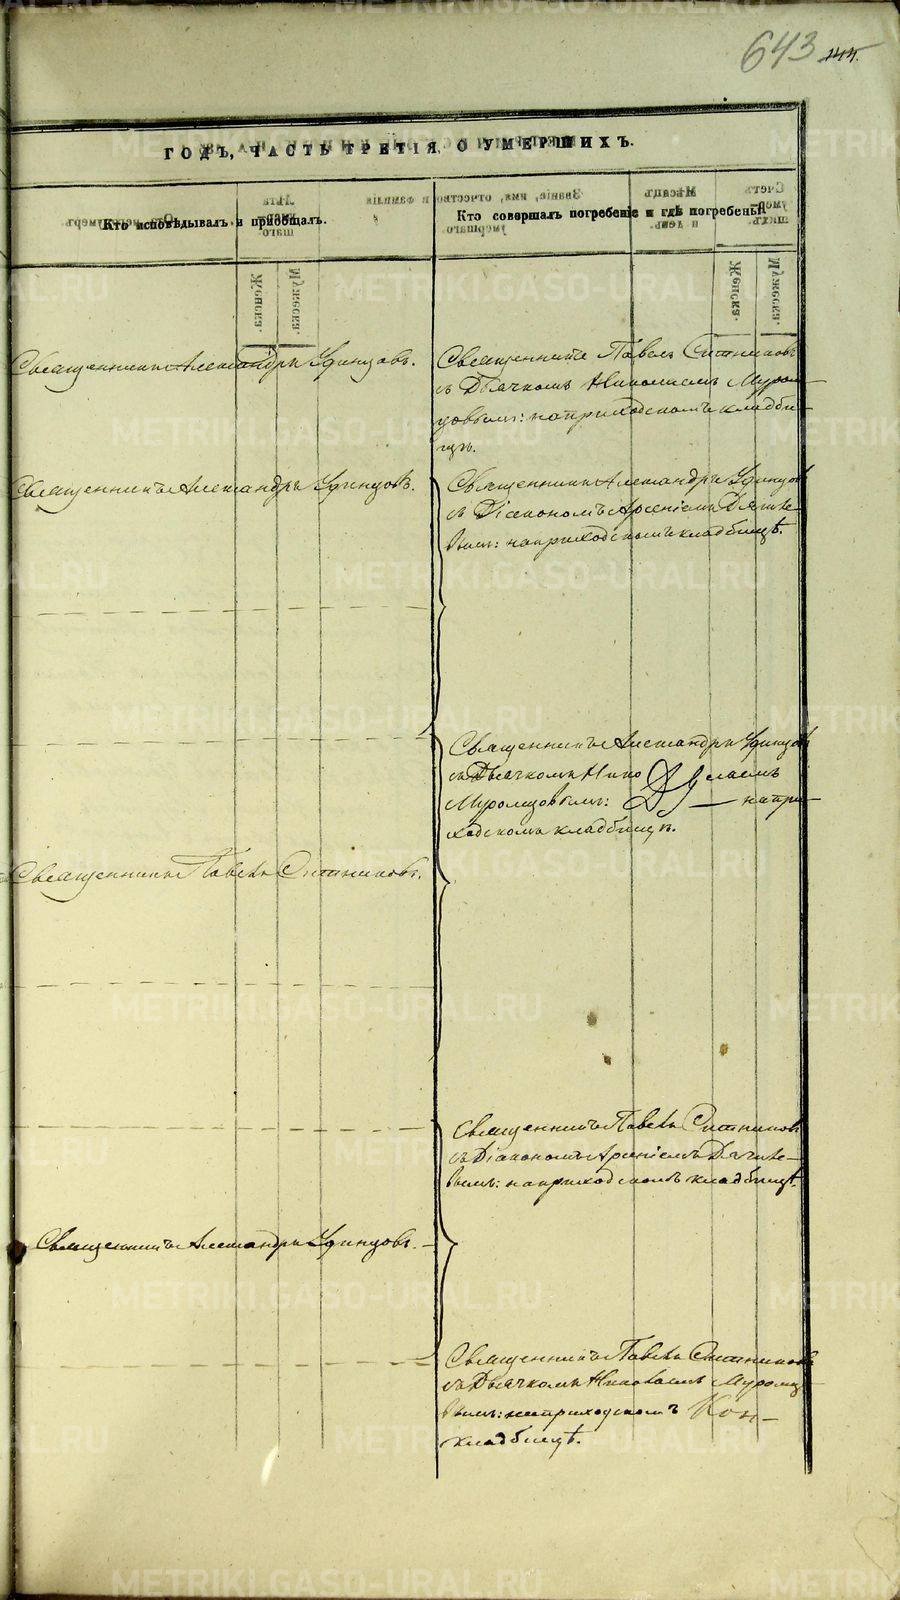 643 144.
ГОДЪ, ЧАСТЬ ТРЕТІЯ, О УМЕРШИХЪ.
Кто исповѣдывалъ и пріобщалъ.
Кто совершалъ погребеніе и гдѣ погребены.
Священникъ Александръ Удинцовъ.
Священникъ Павелъ Ситниковъ
съ Дьячкомъ Николаемъ Муром-
цовымъ: на приходскомъ кладби-
щѣ.
Священникъ Александръ Удинцовъ.
Священникъ Александръ Удинцовъ
съ Діакономъ Арсеніемъ
вымъ: на приходскомъ кладбищѣ.
Священникъ Александръ Удинцовъ
съ Дьячкомъ Николаемъ
Муромцовымъ: на при-
ходскомъ кладбищѣ.
Священникъ Павелъ Ситниковъ.
Священникъ Павелъ Ситниковъ
съ Діакономъ Арсеніемъ
вымъ: на приходскомъ кладбищѣ.
Священникъ Александръ Удинцовъ.
Священникъ Павелъ Ситниковъ
съ Дьячкомъ Николаемъ Муромцо-
вымъ: на приходскомъ
кладбищѣ.
METRIKI.GASO-URAL.RU